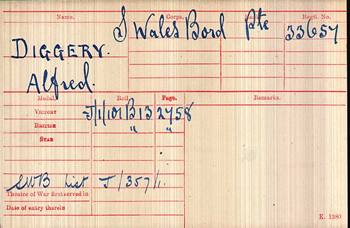 Name. Corps. Rank. Regtl. No.
DIGGERY. S Wales Bord Pte 33657
Alfred.
Medal. Roll. Page. Remarks.
VICTORY J/1/101B13 2758
BRITISH " "
STAR
SWB List J/357/1.
Theatre of War first served in
Date of entry therein
K. 1380